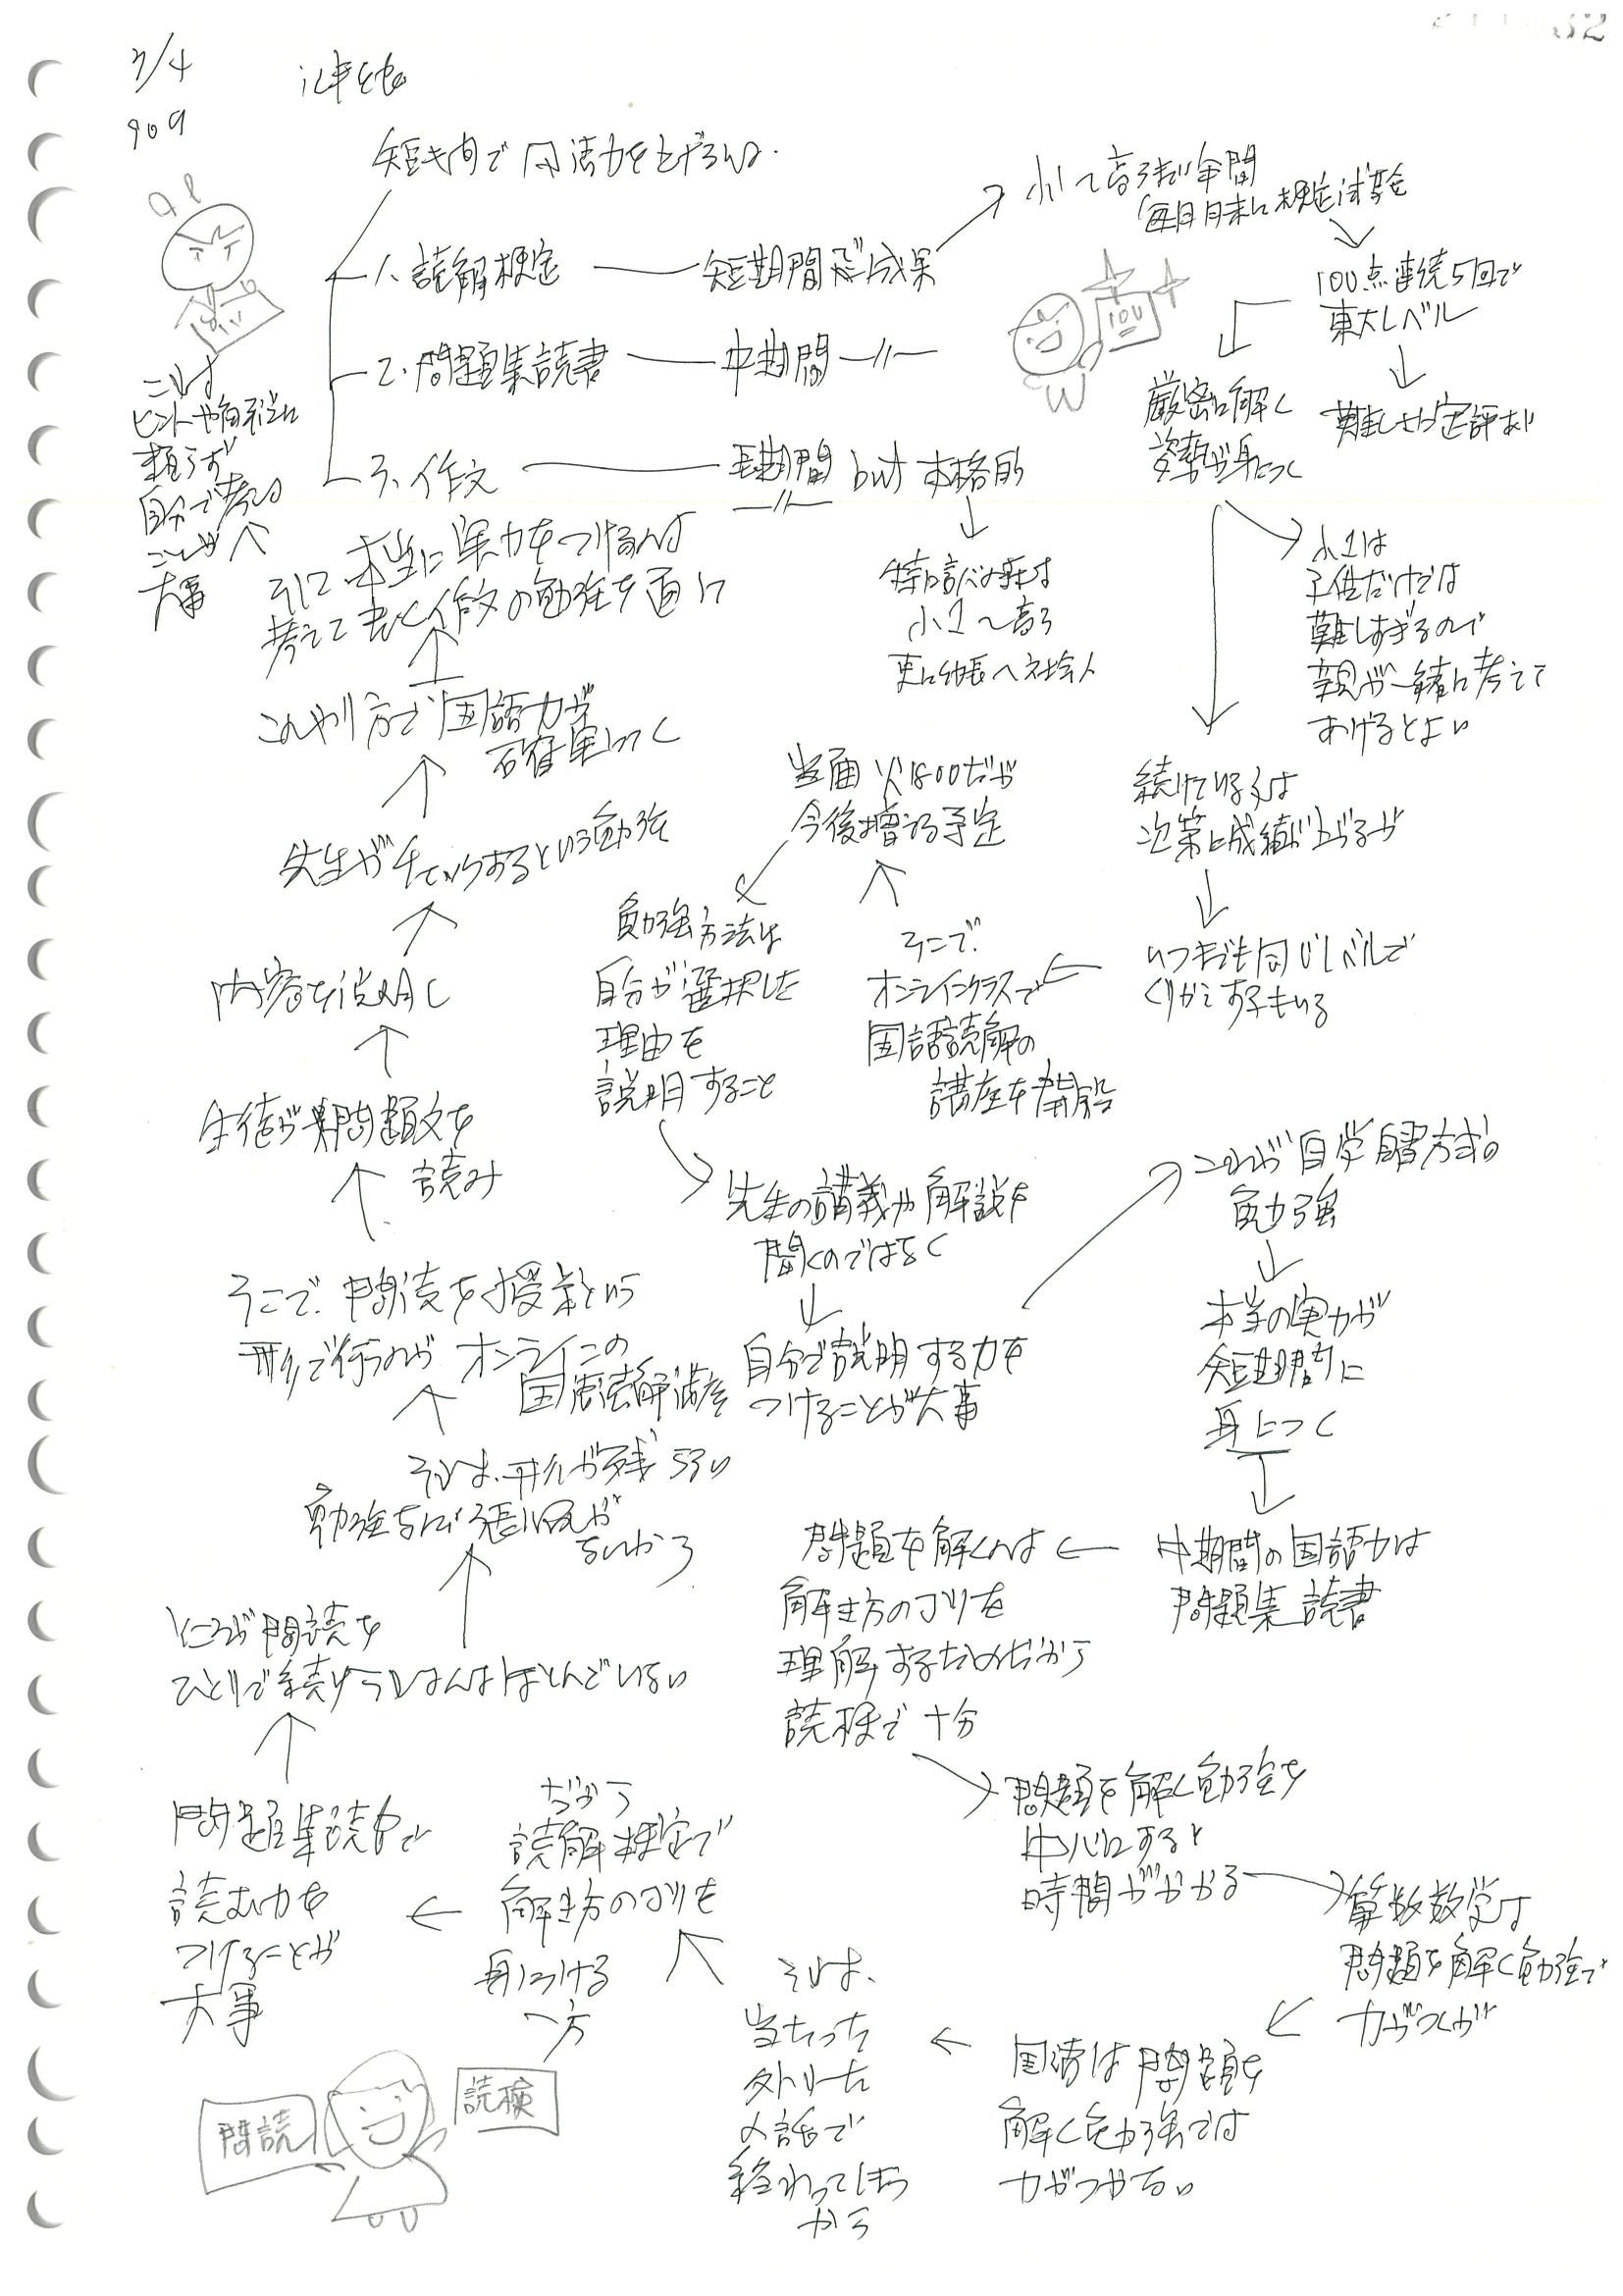 3/4
909
短期間で国語力を上げるには
1. 読解検定 短期間で成果
2. 問題集読書 中期間 〃
3. 作文 長期間 but 本格的
〃
小1〜高3まで年間
毎月月末に検定試験
100点連続5回で
東大レベル
難しさに定評あり
100
厳密に解く
姿勢が身につく
小1は
子供だけでは
難しすぎるので
親が一緒に考えて
あげるとよい
続けている子は
次第に成績が上がるが
いつまでも同じレベルで
くりかえす子もいる
そこで、
オンラインクラスで
国語読解の
講座を開設
当面火1800だが
今後増える予定
勉強方法は
自分が選択した
理由を
説明すること
先生の講義や解説を
聞くのではなく
自分で説明する力を
つけることが大事
これが自学自習方式の
勉強
本当の実力が
短期間に
身につく
中期間の国語力は
問題集読書
問題を解くのは
解き方のコツを
理解するためだから
読検で十分
問題を解く勉強を
中心にすると
時間がかかる
算数数学は
問題を解く勉強で
力がつくが
国語は問題を
解く勉強では
力がつかない
それは、
当たった
外れた
の話で
終わってしまう
から
だから
読解検定で
解き方のコツを
身につける
一方
問題集読書で
読む力を
つけることが
大事
ところが問読を
ひとりで続けられる人はほとんどいない
それは、形が残らない
勉強なので張り合いが
ないから
そこで、問読を授業という
形で行うのが オンラインの
国語読解講座
生徒が問題文を
読み
内容を説明し
先生がチェックするという勉強
このやり方で国語力が
確実につく
そして、本当に実力をつけるのは
考えて書く作文の勉強を通して
特に言葉の森は
小1〜高3
更に幼長へ社会人
これは
ヒントや解説に
頼らず
自分で考える
ことが
大事
問読
読検